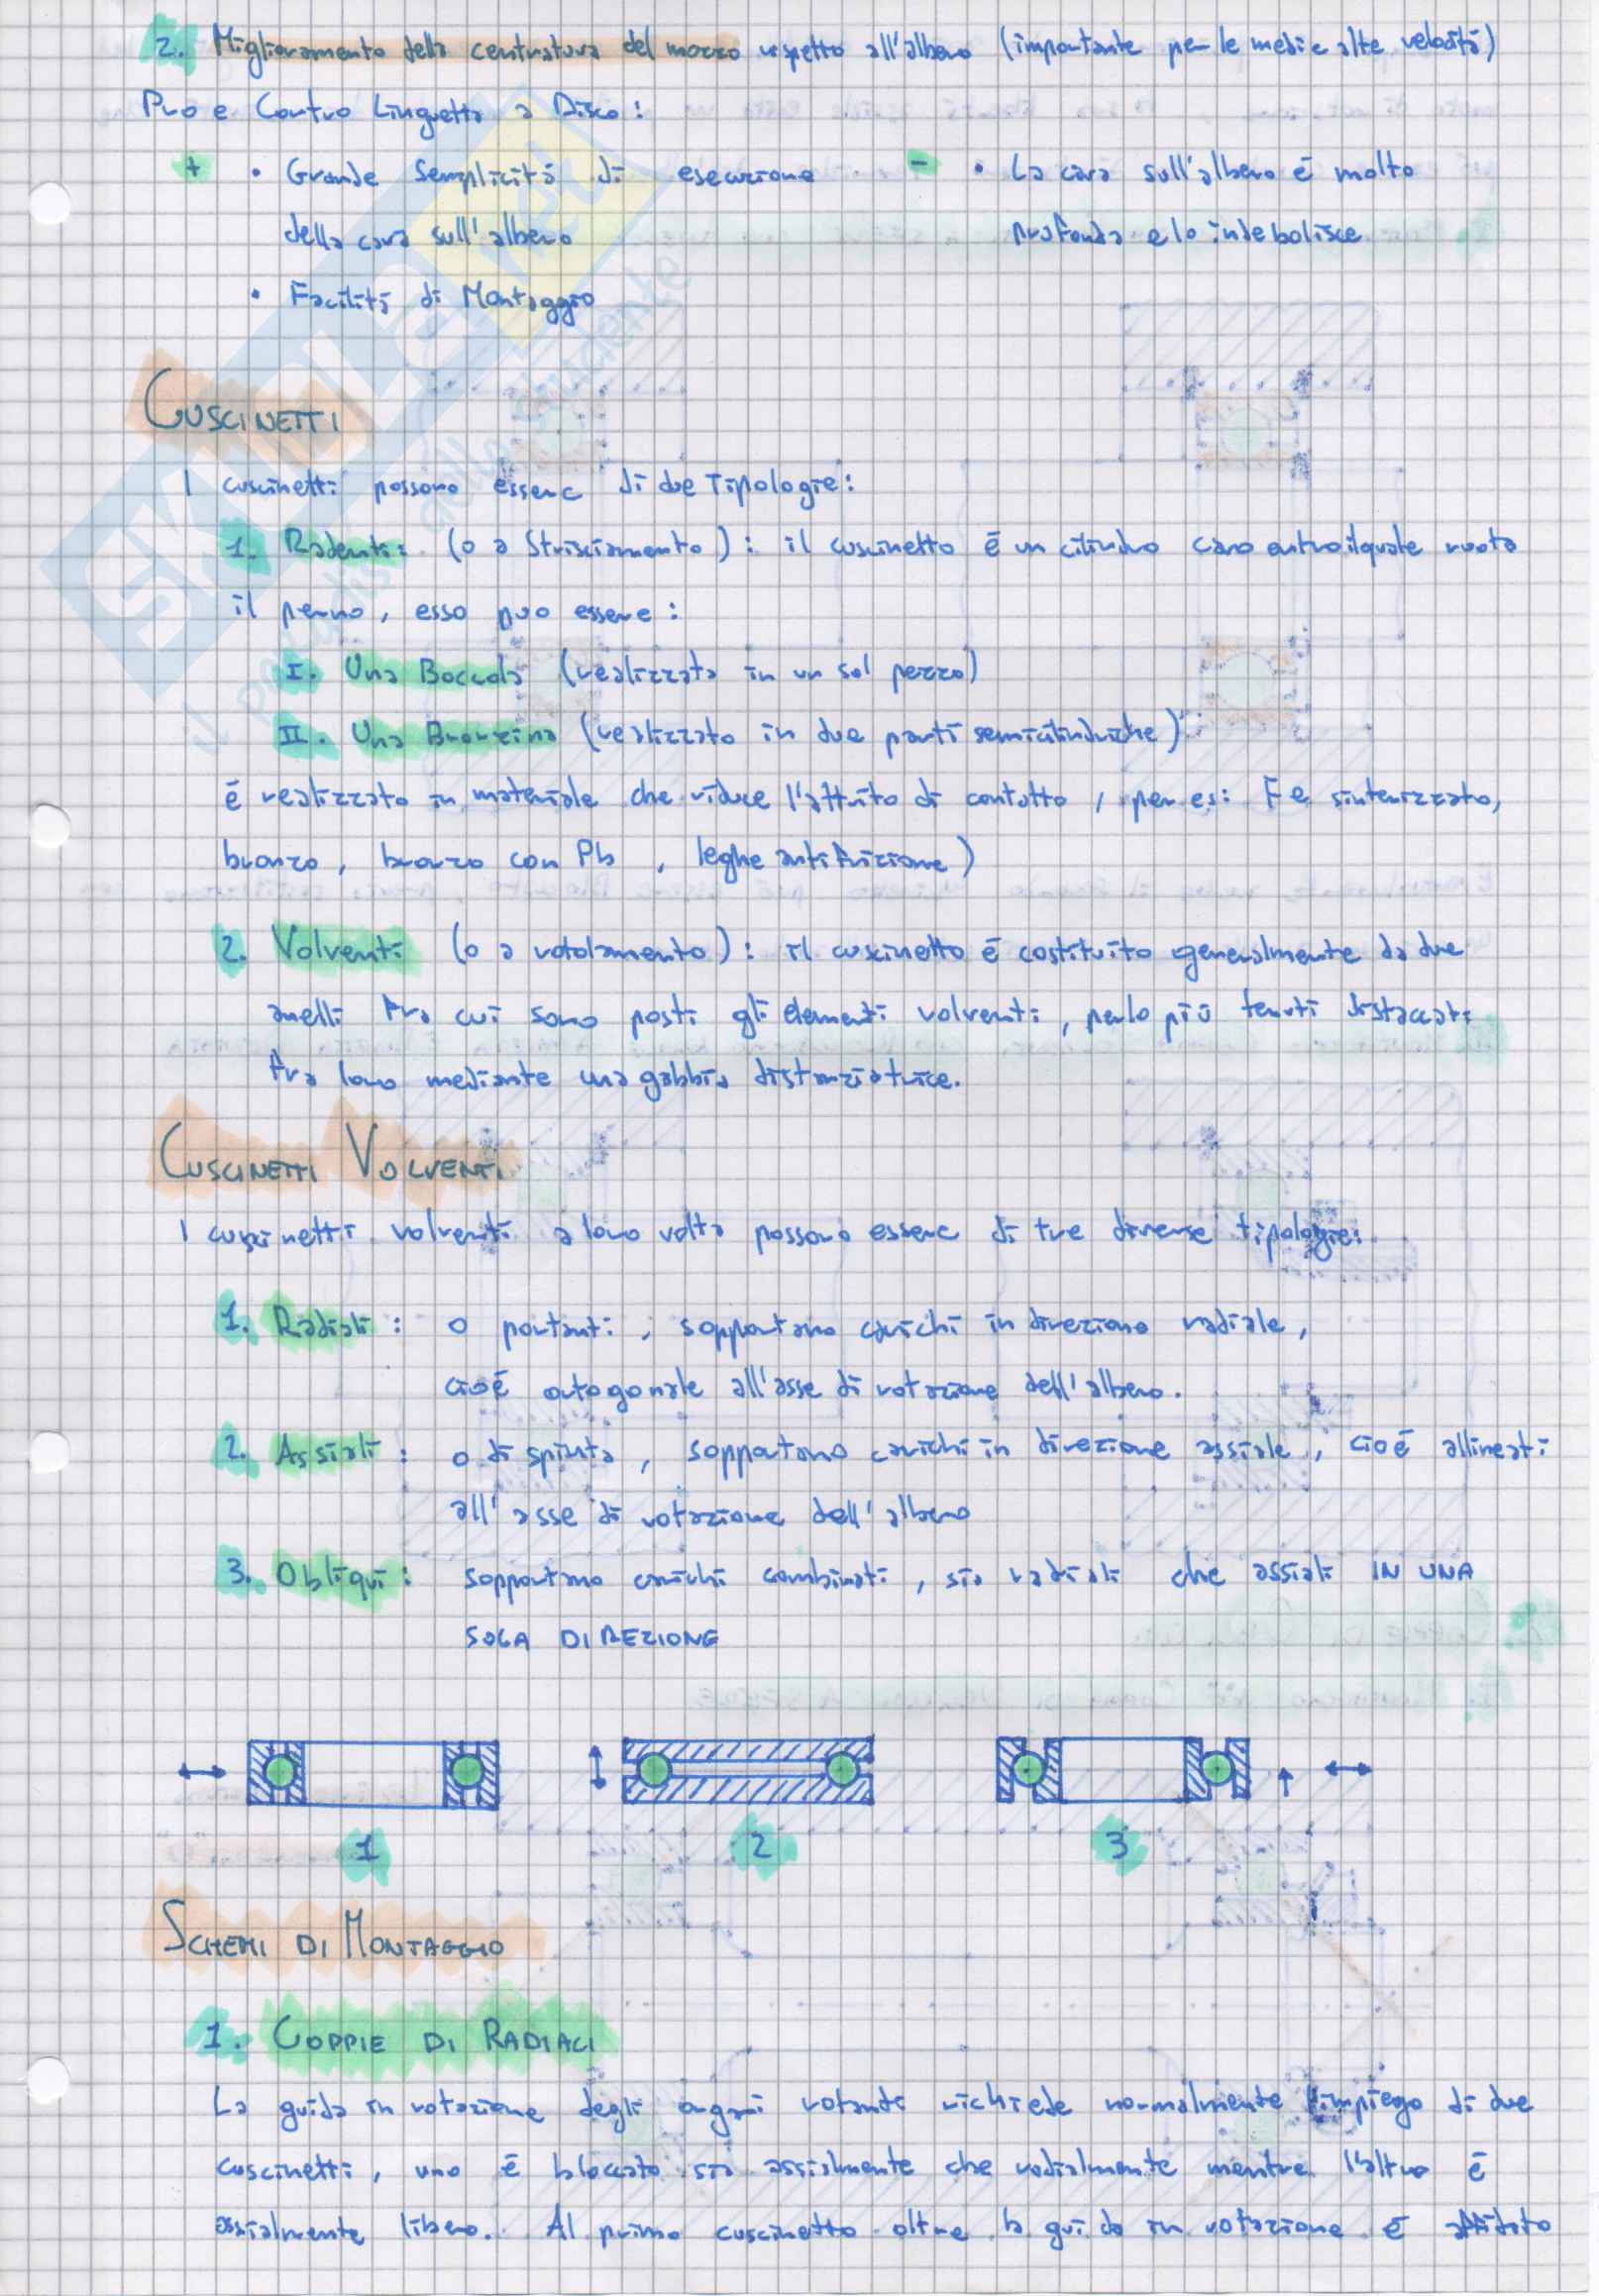 2. Miglioramento della centratura del mozzo rispetto all'albero (importante per le medie alte velocità)
Pro e Contro Linguetta a Disco:
+ • Grande semplicità di esecuzione - • La cava sull'albero è molto
della cava sull'albero profonda e lo indebolisce
• Facilità di Montaggio
CUSCINETTI
I cuscinetti possono essere di due Tipologie:
1. Radenti: (o a Strisciamento): il cuscinetto è un cilindro cavo entro il quale ruota
il perno, esso può essere:
I. Una Boccola (realizzata in un sol pezzo)
II. Una Bronzina (realizzato in due parti semicilindriche)
è realizzato in materiale che riduce l'attrito di contatto, per es: Fe sinterizzato,
bronzo, bronzo con Pb, leghe antifrizione)
2. Volventi (o a rotolamento): il cuscinetto è costituito generalmente da due
anelli fra cui sono posti gli elementi volventi, perlo più tenuti distaccati
fra loro mediante una gabbia distanziatrice.
CUSCINETTI VOLVENTI
I cuscinetti volventi a loro volta possono essere di tre diverse tipologie:
1. Radiali: o portanti, sopportano carichi in direzione radiale,
cioè ortogonale all'asse di rotazione dell'albero.
2. Assiali: o di spinta, sopportano carichi in direzione assiale, cioè allineati
all'asse di rotazione dell'albero
3. Obliqui: sopportano carichi combinati, sia radiali che assiali IN UNA
SOLA DIREZIONE
1 2 3
SCHEMI DI MONTAGGIO
1. COPPIE DI RADIALI
La guida in rotazione degli organi rotanti richiede normalmente l'impiego di due
cuscinetti, uno è bloccato sia assialmente che radialmente mentre l'altro è
assialmente libero. Al primo cuscinetto oltre la guida in rotazione è affidato
SKUOLA.net
il paradiso dello studente